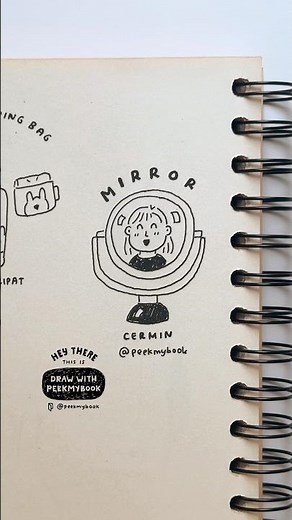 ING BAG
MIRROR
IPAT
CERMIN
@peekmybook
HEY THERE
THIS IS
DRAW WITH
PEEKMYBOOK
@peekmybook